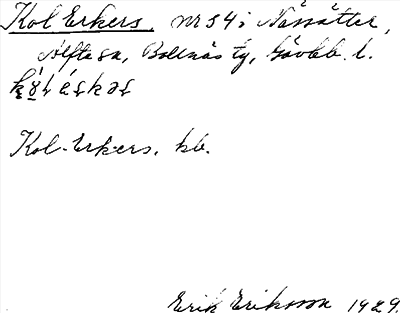 Kol Erkers, nr 54 i Nässätter,
Alfta sn, Bollnäs tg, Gävleb. l.
Kol-Erkers. kb.
Erik Eriksson 1929.